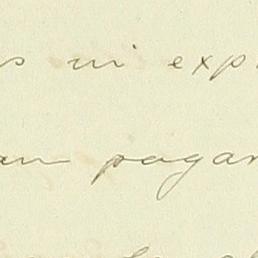 s ni exp
an pagan